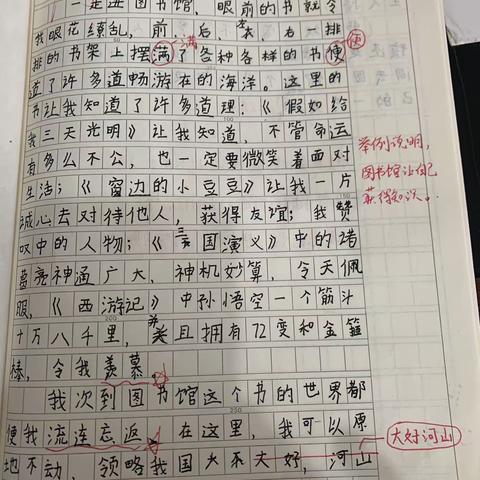 一走进图书馆，眼前的书就令
我眼花缭乱，前、后、左、右一排
排的书架上摆满了各种各样的书便
满
便
道了许多道畅游在的海洋。这里的
书让我知道了许多道理：《假如给
我三天光明》让我知道，不管命运
有多么不公，也一定要微笑着面对
生活；《窗边的小豆豆》让我一片
诚心去对待他人，获得友谊；我赞
叹中的人物；《三国演义》中的诸
葛亮神通广大、神机妙算，令天佩
服，《西游记》中孙悟空一个筋斗
十万八千里，并且拥有72变和金箍
棒，令我羡慕。
举例说明，
图书馆让自己
获得知识。
我次到图书馆这个书的世界都
便我流连忘返。在这里，我可以原
地不动，领略我国大不大好，河山
大好河山